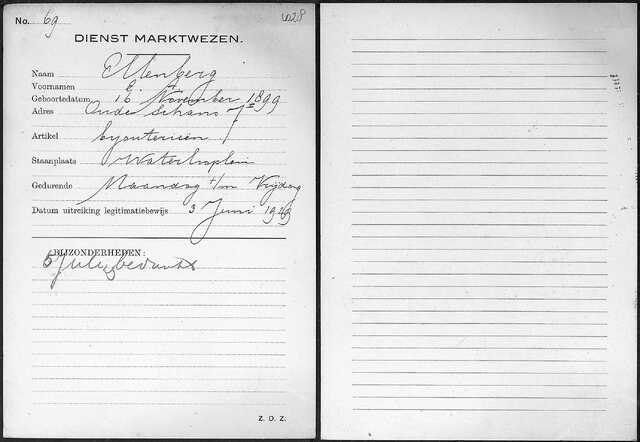 No. 69
1028
DIENST MARKTWEZEN.
Naam Ellenberg
Voornamen E.
Geboortedatum 16 November 1899
Adres Oude Schans 7
Artikel byouterieën
Staanplaats Waterlooplein
Gedurende Maandag t/m Vrijdag
Datum uitreiking legitimatiebewijs 3 Juni 1929
BIJZONDERHEDEN:
5 July bedankt
Z. O. Z.